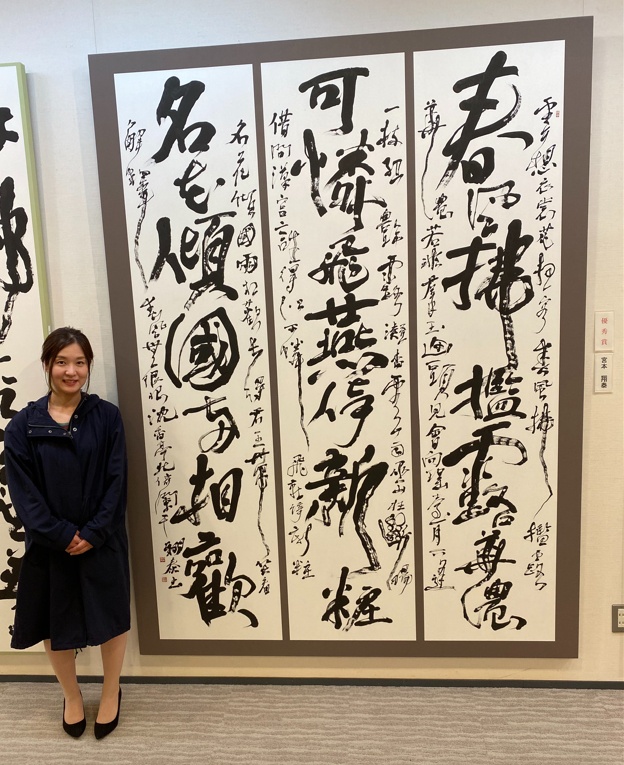 優秀賞
宮本 翔泰
雲想衣裳花想容春風拂檻露
春風拂檻露華濃
華濃若非羣玉山頭見會向瑤臺月下逢
一枝紅艷露凝香雲雨巫山枉斷腸
可憐飛燕倚新粧
借問漢宮誰得似可憐飛燕倚新粧
名花傾國兩相歡長得君王帶笑看
名花傾國兩相歡
解釋春風無限恨沈香亭北倚闌干 翔泰書